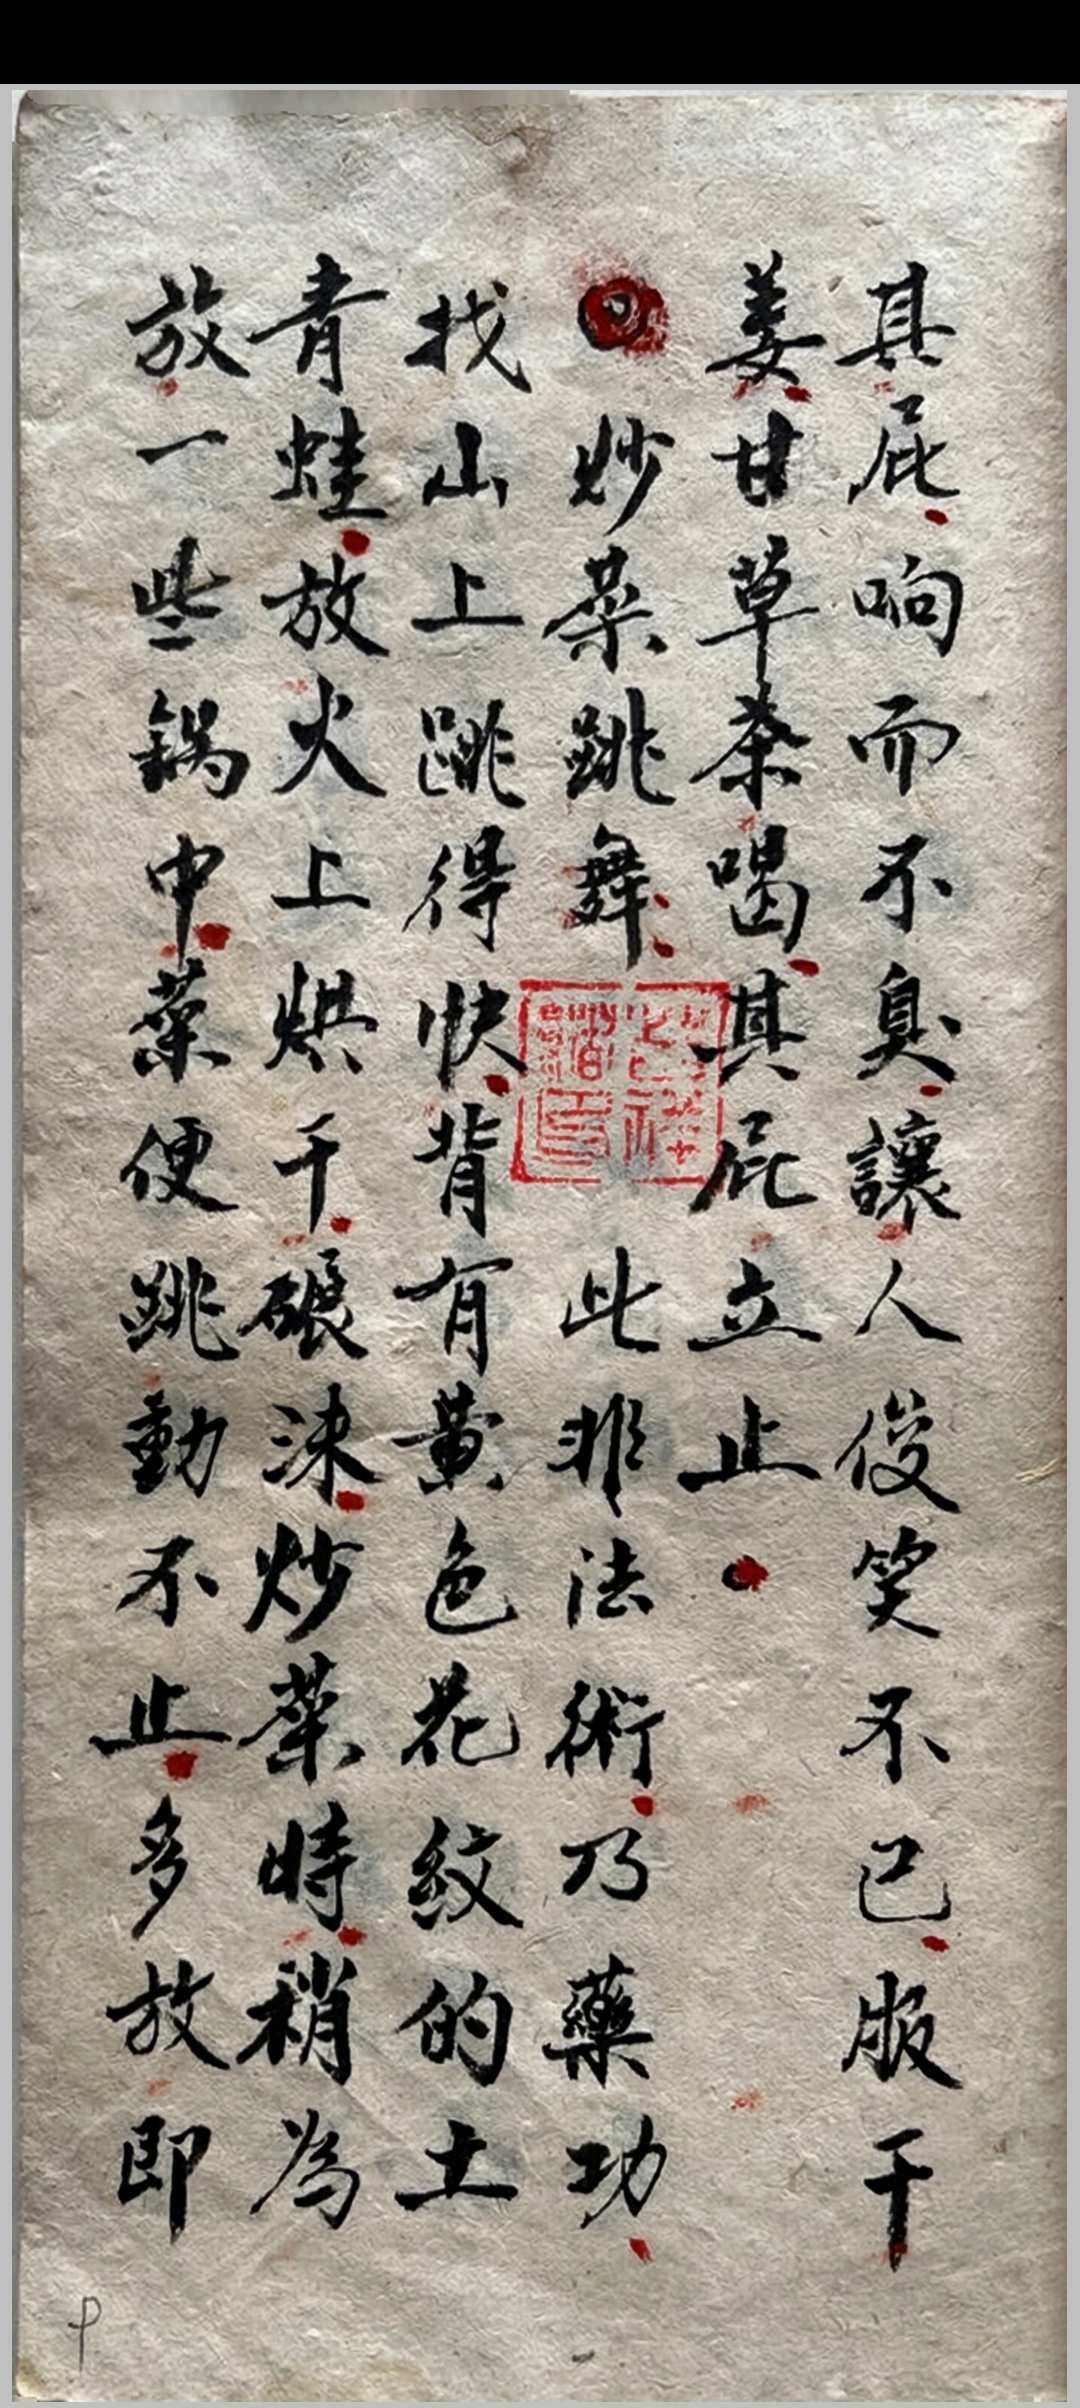 其屁响而不臭讓人俊笑不已服干
姜甘草茶喝其屁立止
炒菜跳舞 此非法術乃藥功
找山上跳得快背有黄色花紋的土
青蛙放火上烘干碾沫炒菜時稍為
放一些鍋中菜便跳動不止多放即